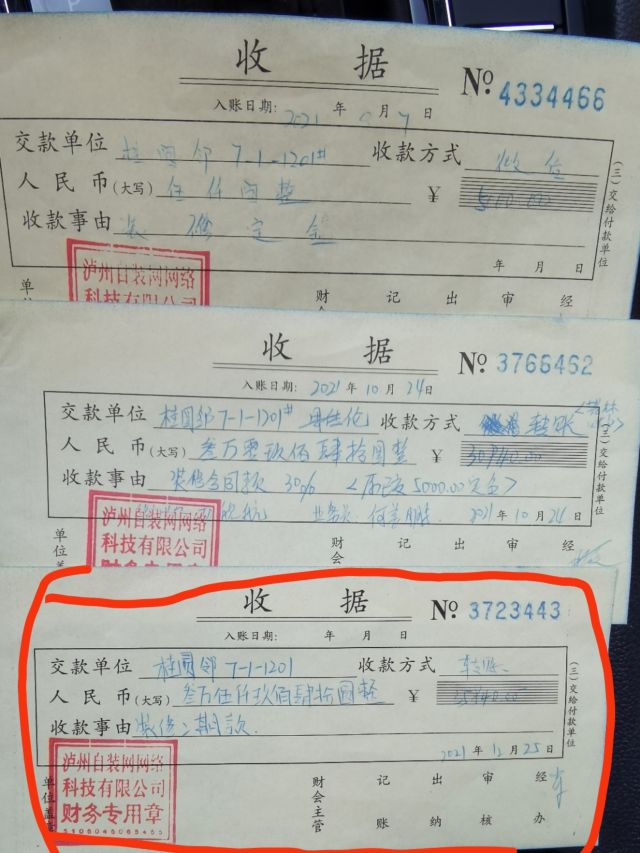 收 据 No 4334466
入账日期: 2021 年 月 7 日
交款单位 桂圆邻 7-1-1201# 收款方式
人民币(大写) 伍仟圆整 ¥
收款事由 装修定金
年 月 日
(三)交给付款单位
泸州自装网网络
科技有限公司
单 财会 记 出 审 经
收 据 No 3766462
入账日期: 2021 年 10 月 24 日
交款单位 桂圆邻 7-1-1201# 收款方式 转账
人民币(大写) 叁万零玖佰肆拾圆整 ¥ 30940.00
收款事由 装修合同款 30% <后改5000.00定金>
业务员: 2021 年 10 月 24 日
泸州自装网网络
科技有限公司
财务专用章
单位盖 财会 记 出 审 经
收 据 No 3723443
入账日期: 年 月 日
交款单位 桂圆邻 7-1-1201 收款方式 转账
人民币(大写) 叁万伍仟玖佰肆拾圆整 ¥ 35940.00
收款事由 装修二期款
2021 年 12 月 25 日
(三)交给付款单位
泸州自装网网络
科技有限公司
财务专用章
单位盖 财会主管 记账 出纳 审核 经办